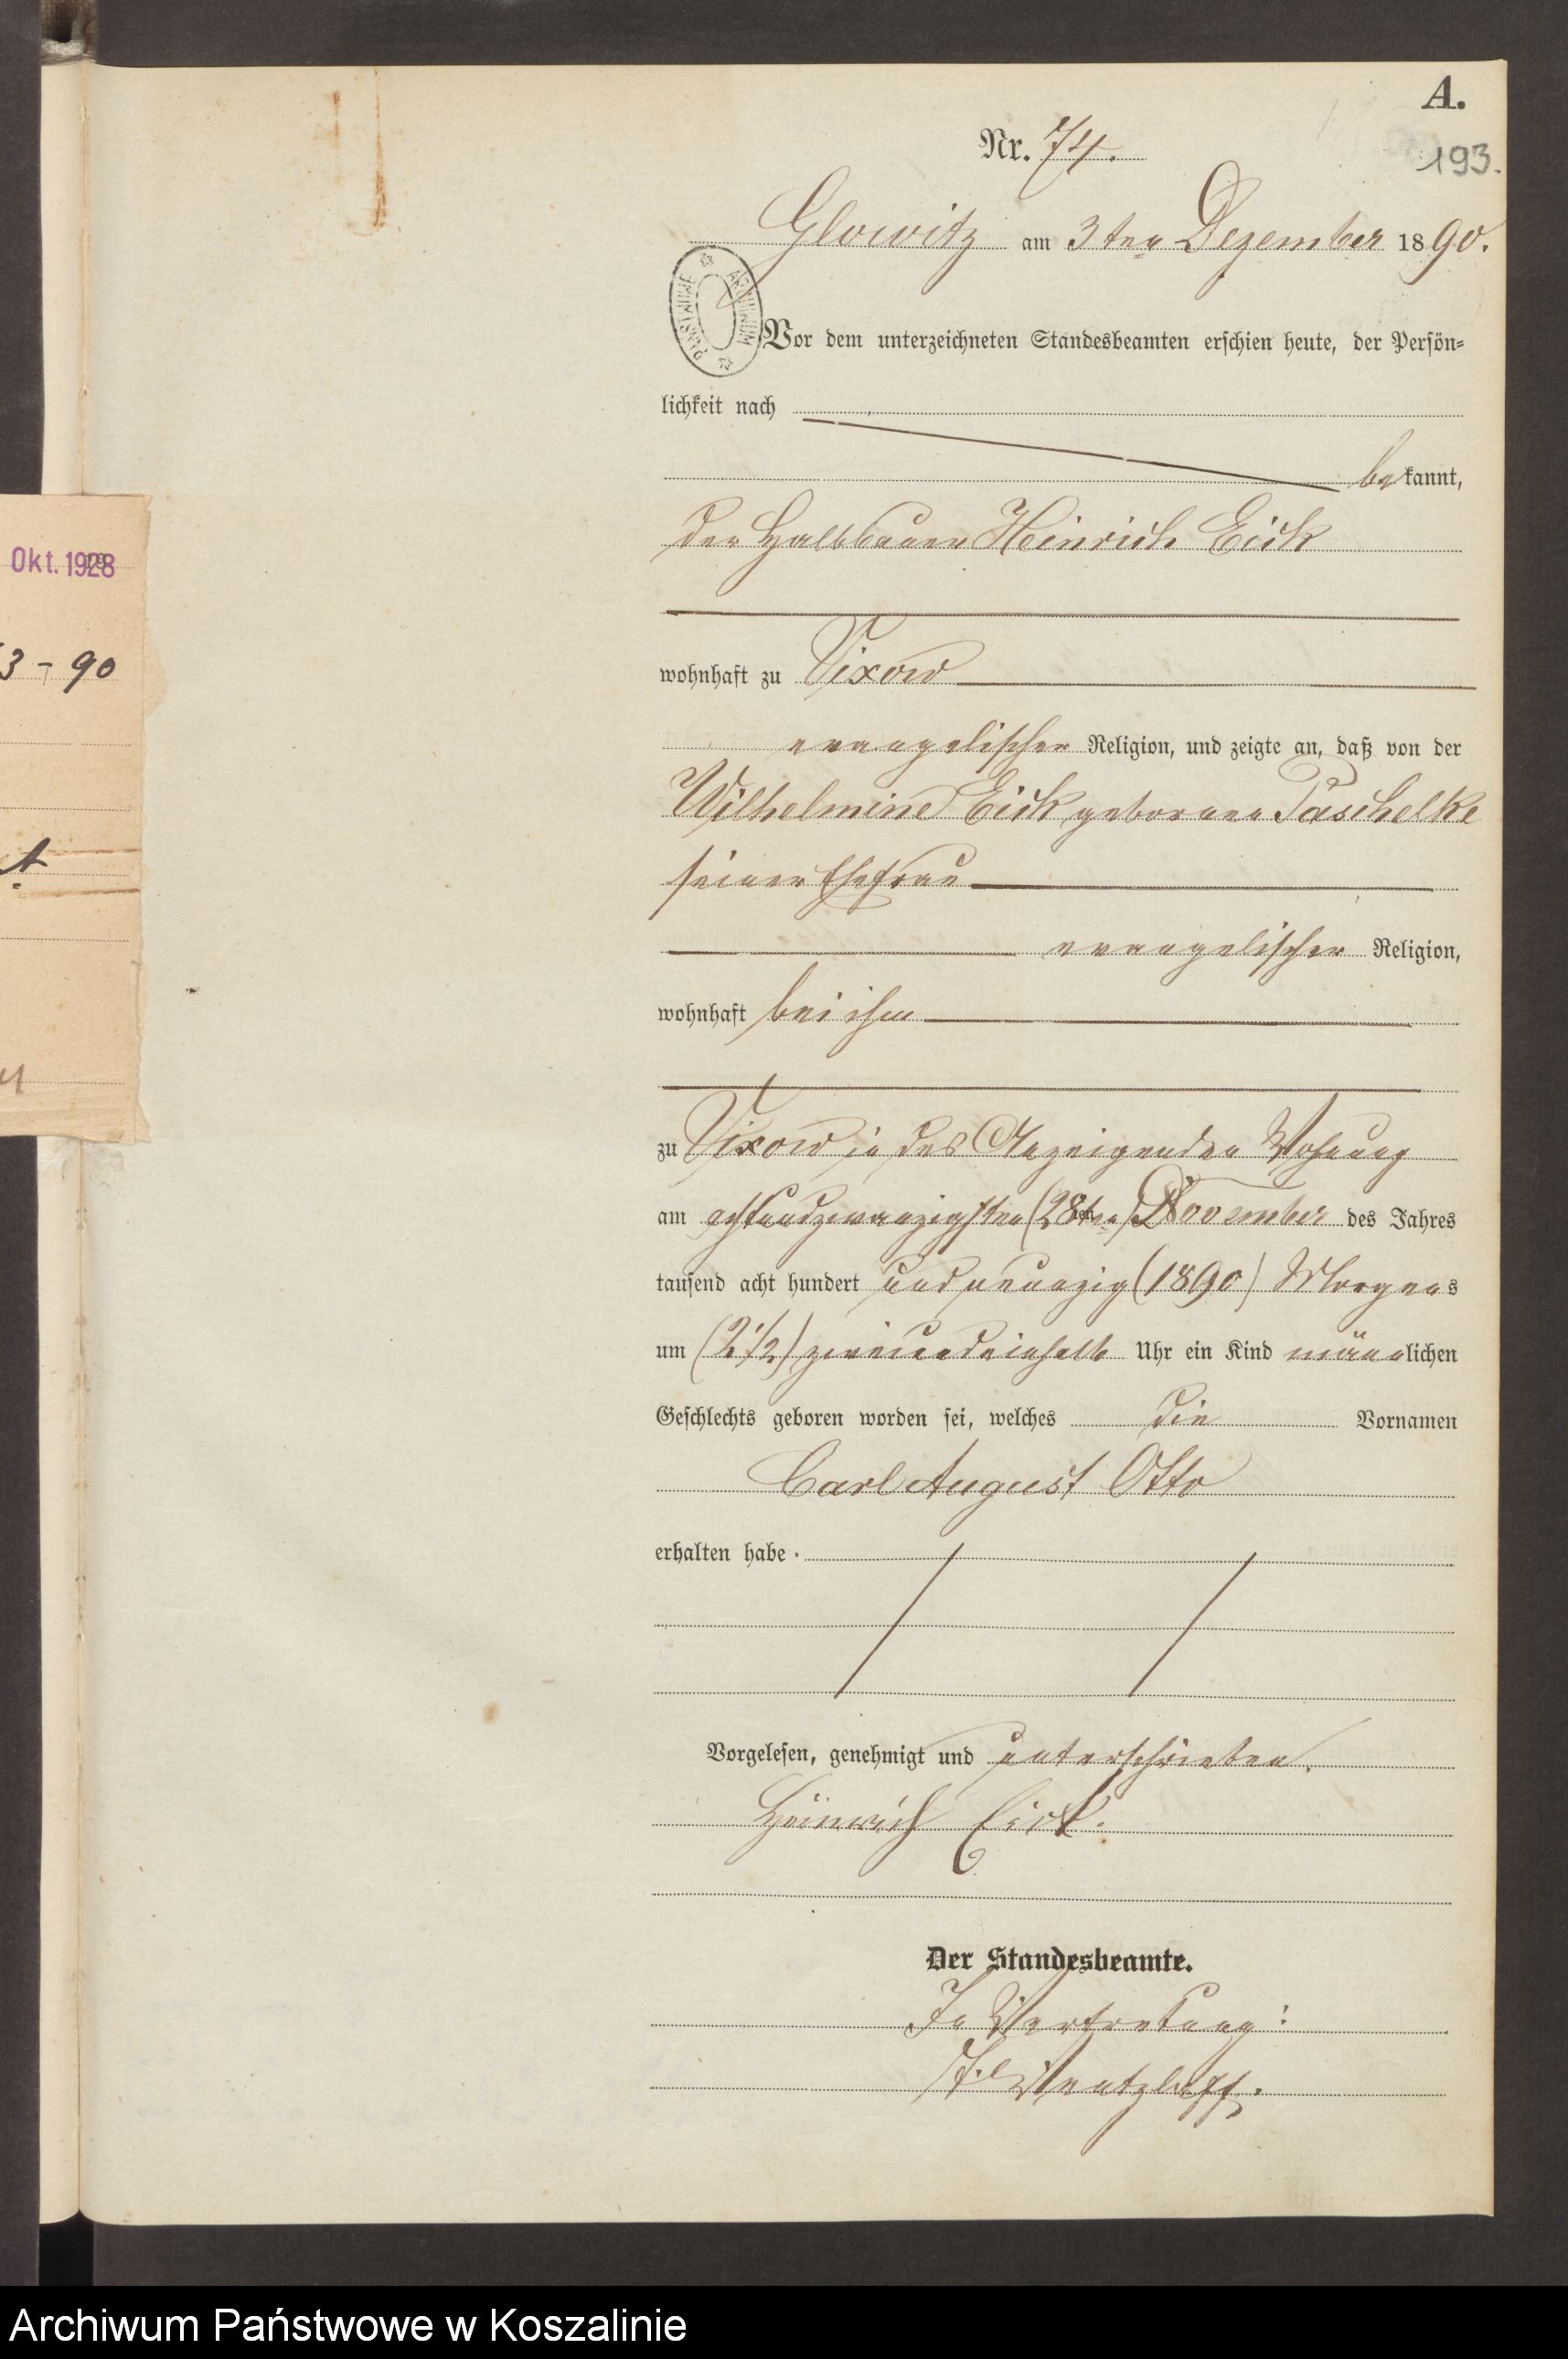 A.
Nr. 74.
193.
Glowitz am 3ten Dezember 1890.
ARCHIWUM PAŃSTWOWE
Vor dem unterzeichneten Standesbeamten erschien heute, der Persön-
lichkeit nach
bekannt,
der Halbbauer Heinrich Eick
Okt. 1928
wohnhaft zu Vixow
3 - 90
evangelischer Religion, und zeigte an, daß von der
Wilhelmine Eick geborenen Paschelke
seiner Ehefrau
evangelischer Religion,
wohnhaft bei ihm
zu Vixow in des Anzeigenden Wohnung
am achtundzwanzigsten (28ten) November des Jahres
tausend acht hundert und neunzig (1890) Morgens
um (2 1/2) zweiundeinhalb Uhr ein Kind männlichen
Geschlechts geboren worden sei, welches die Vornamen
Carl August Otto
erhalten habe.
Vorgelesen, genehmigt und unterschrieben.
Heinrich Eick.
Der Standesbeamte.
In Vertretung:
Wentzlaff.
Archiwum Państwowe w Koszalinie